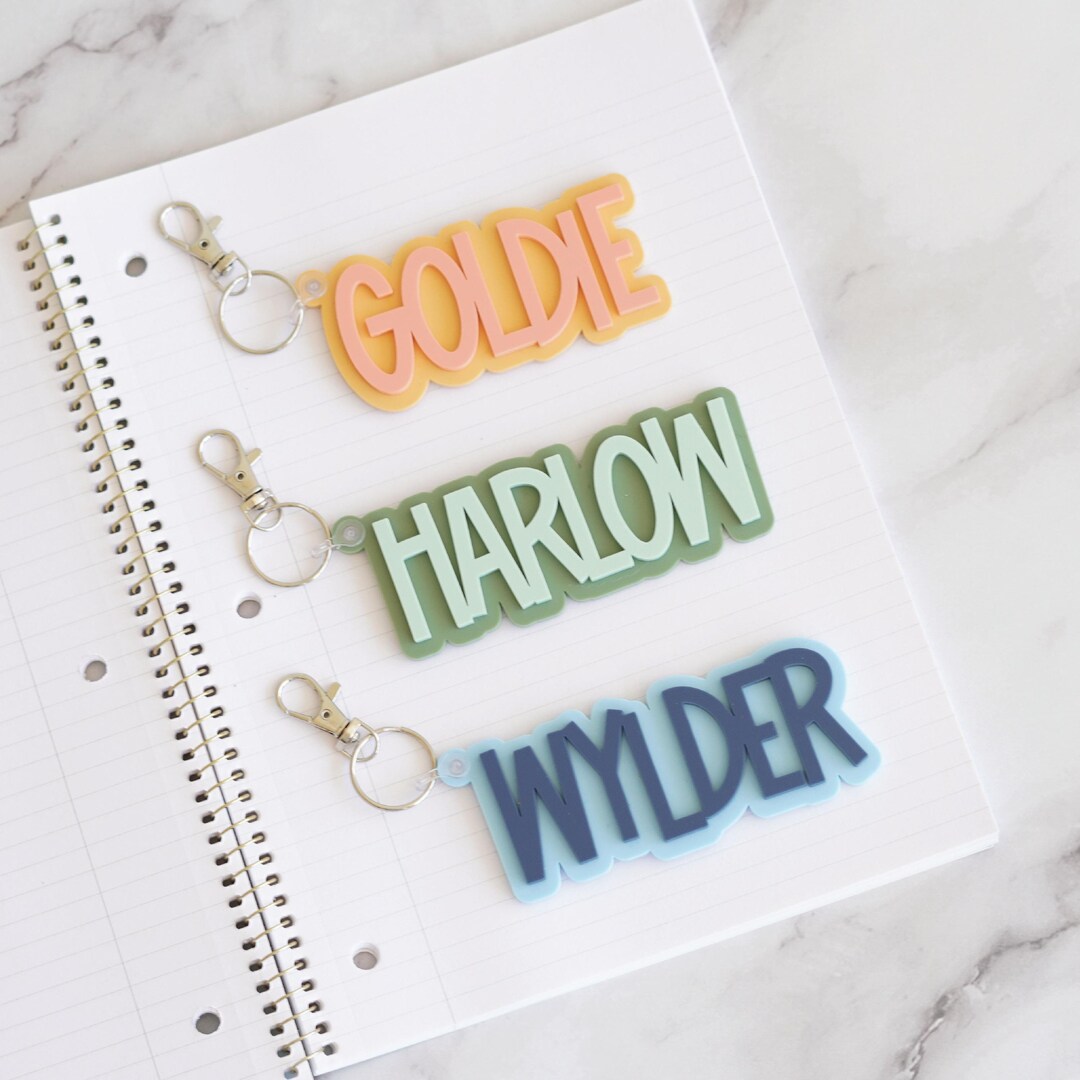 GOLDIE
HARLOW
WYLDER